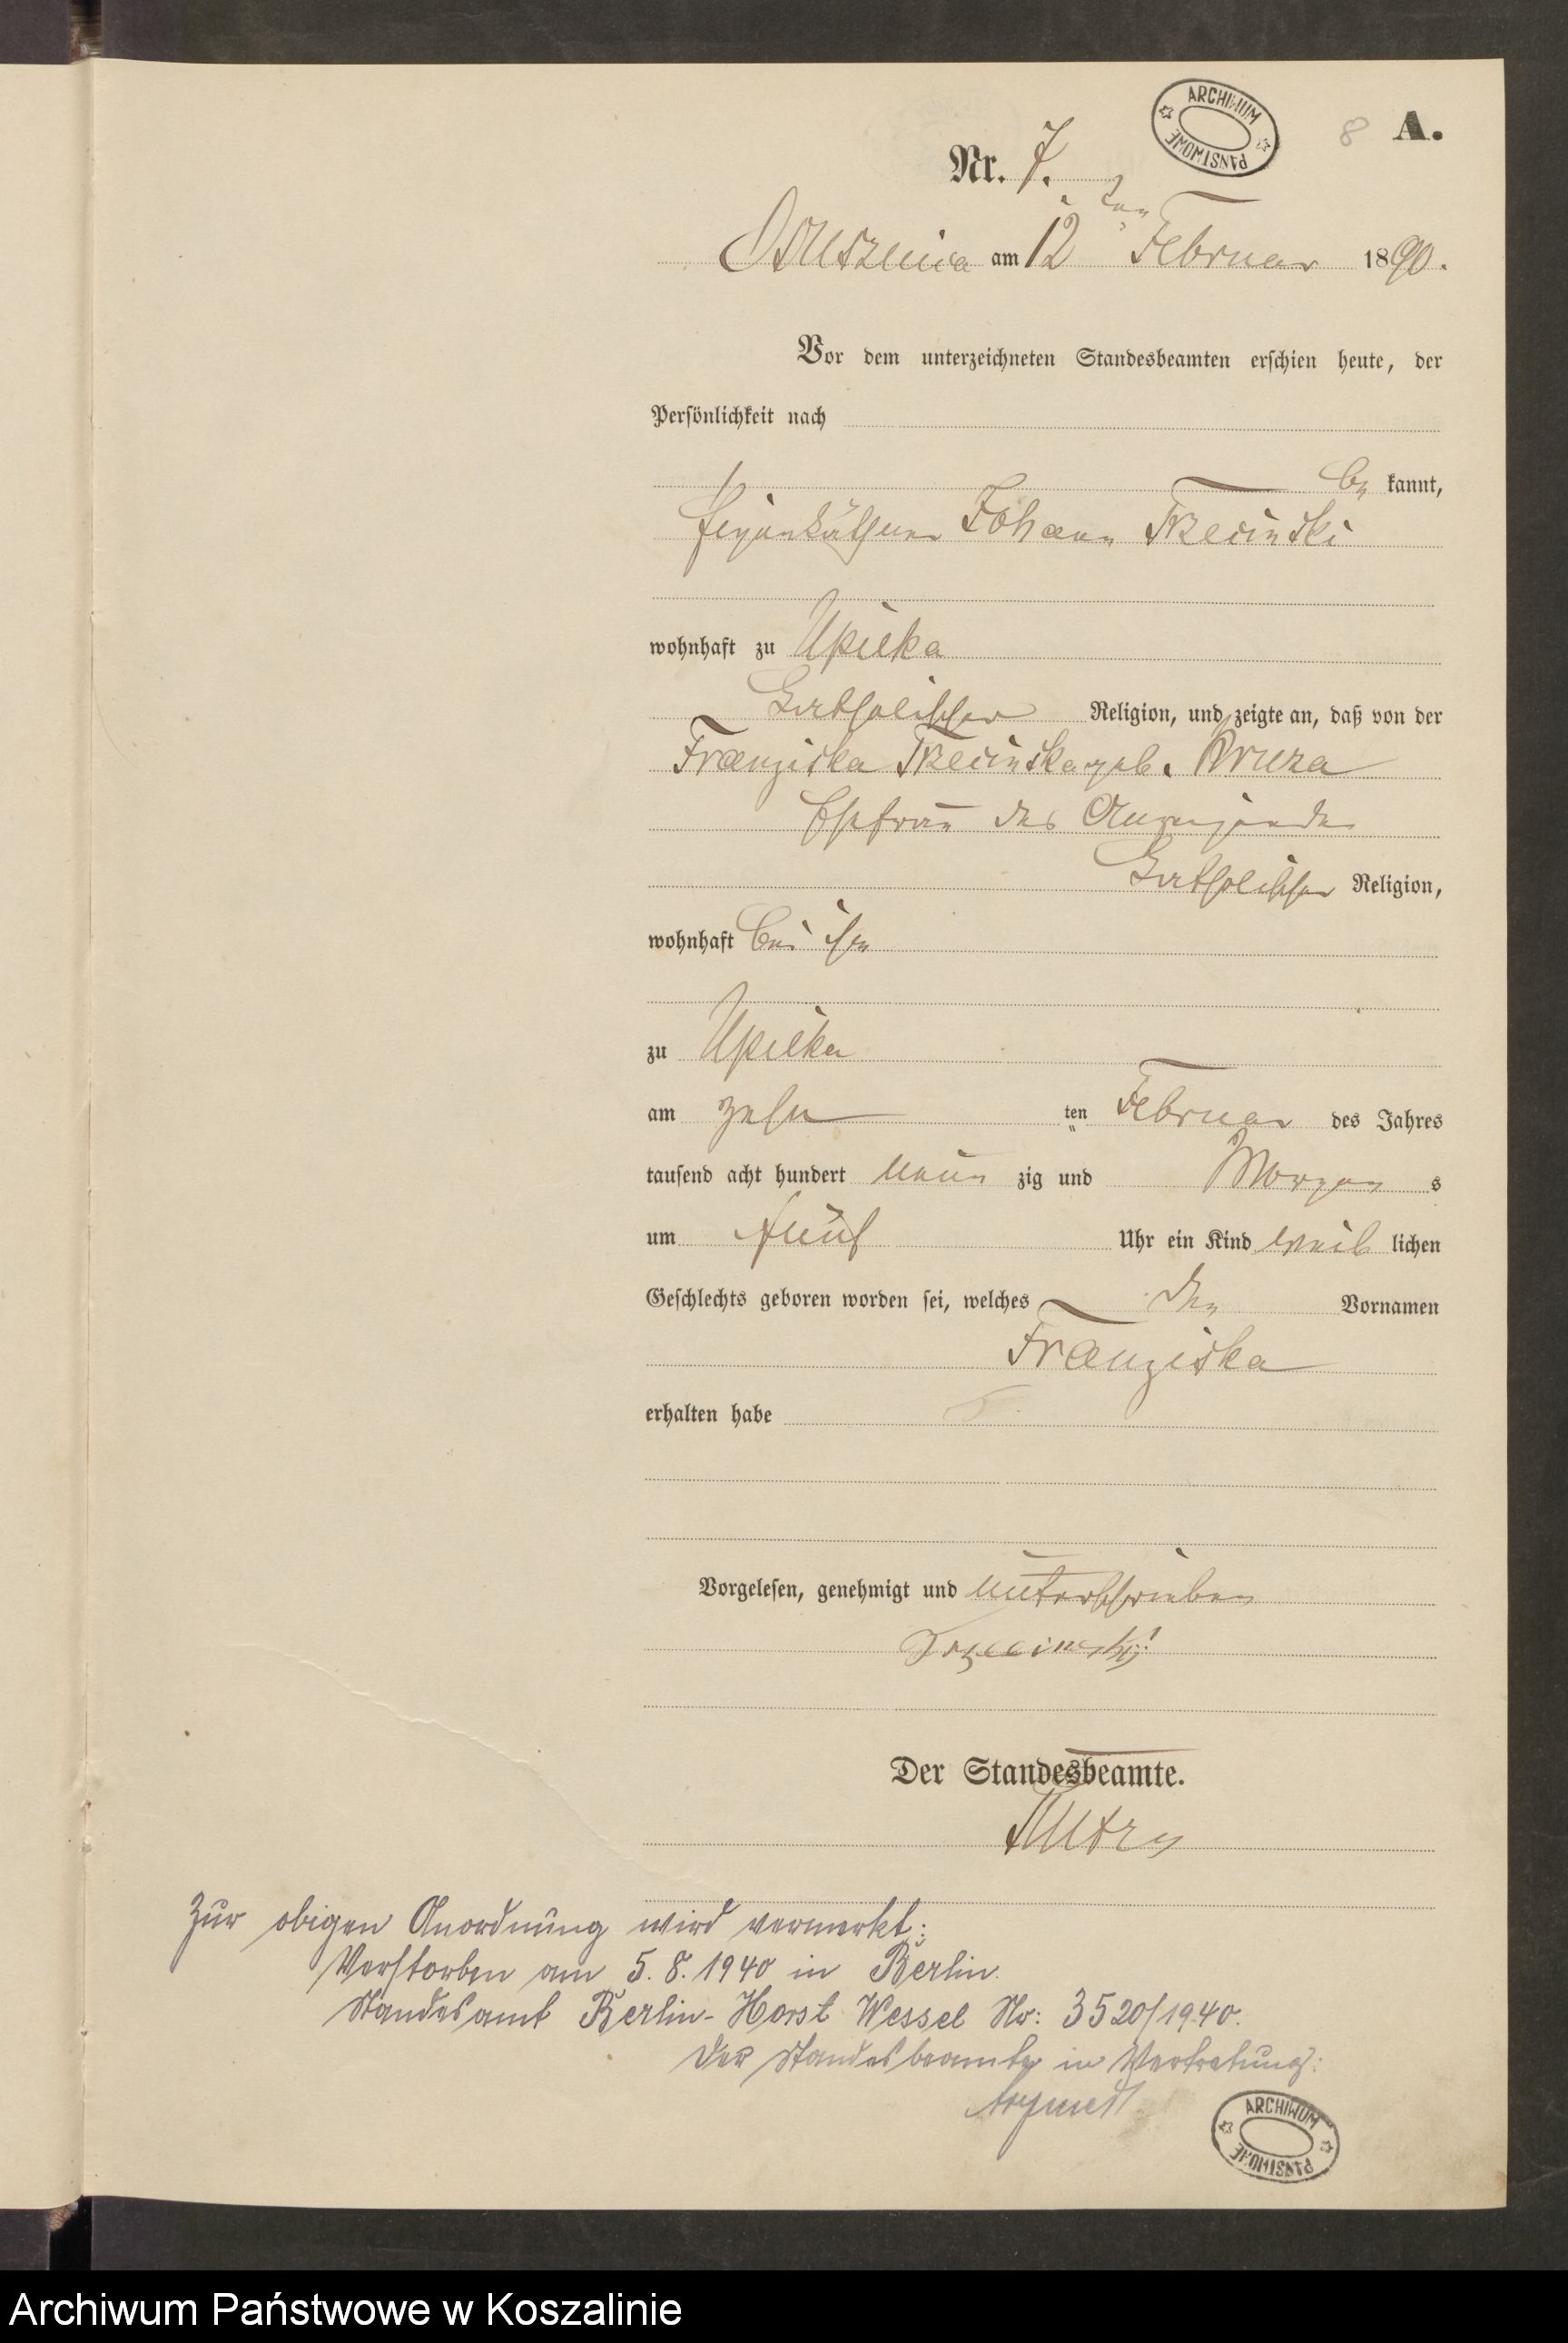 ARCHIWUM PAŃSTWOWE
8 A.
Nr. 7.
Osuszenica am 12 ten Februar 1890.
Vor dem unterzeichneten Standesbeamten erschien heute, der
Persönlichkeit nach
be kannt,
Eigenkäthner Johann Trzecinski
wohnhaft zu Upilka
katholischer Religion, und zeigte an, daß von der
Franziska Trzecinska geb. Bruza
Ehefrau des Anzeigenden
katholischer Religion,
wohnhaft bei ihm
zu Upilka
am zehn ten Februar des Jahres
tausend acht hundert neun zig und Morgen s
um fünf Uhr ein Kind weib lichen
Geschlechts geboren worden sei, welches den Vornamen
Franziska
erhalten habe
Vorgelesen, genehmigt und unterschrieben
Der Standesbeamte.
Zur obigen Anordnung wird vermerkt:
Verstorben am 5.8.1940 in Berlin.
Standesamt Berlin-Horst Wessel Nr: 3520/1940.
Der Standesbeamte in Vertretung:
ARCHIWUM PAŃSTWOWE
Archiwum Państwowe w Koszalinie